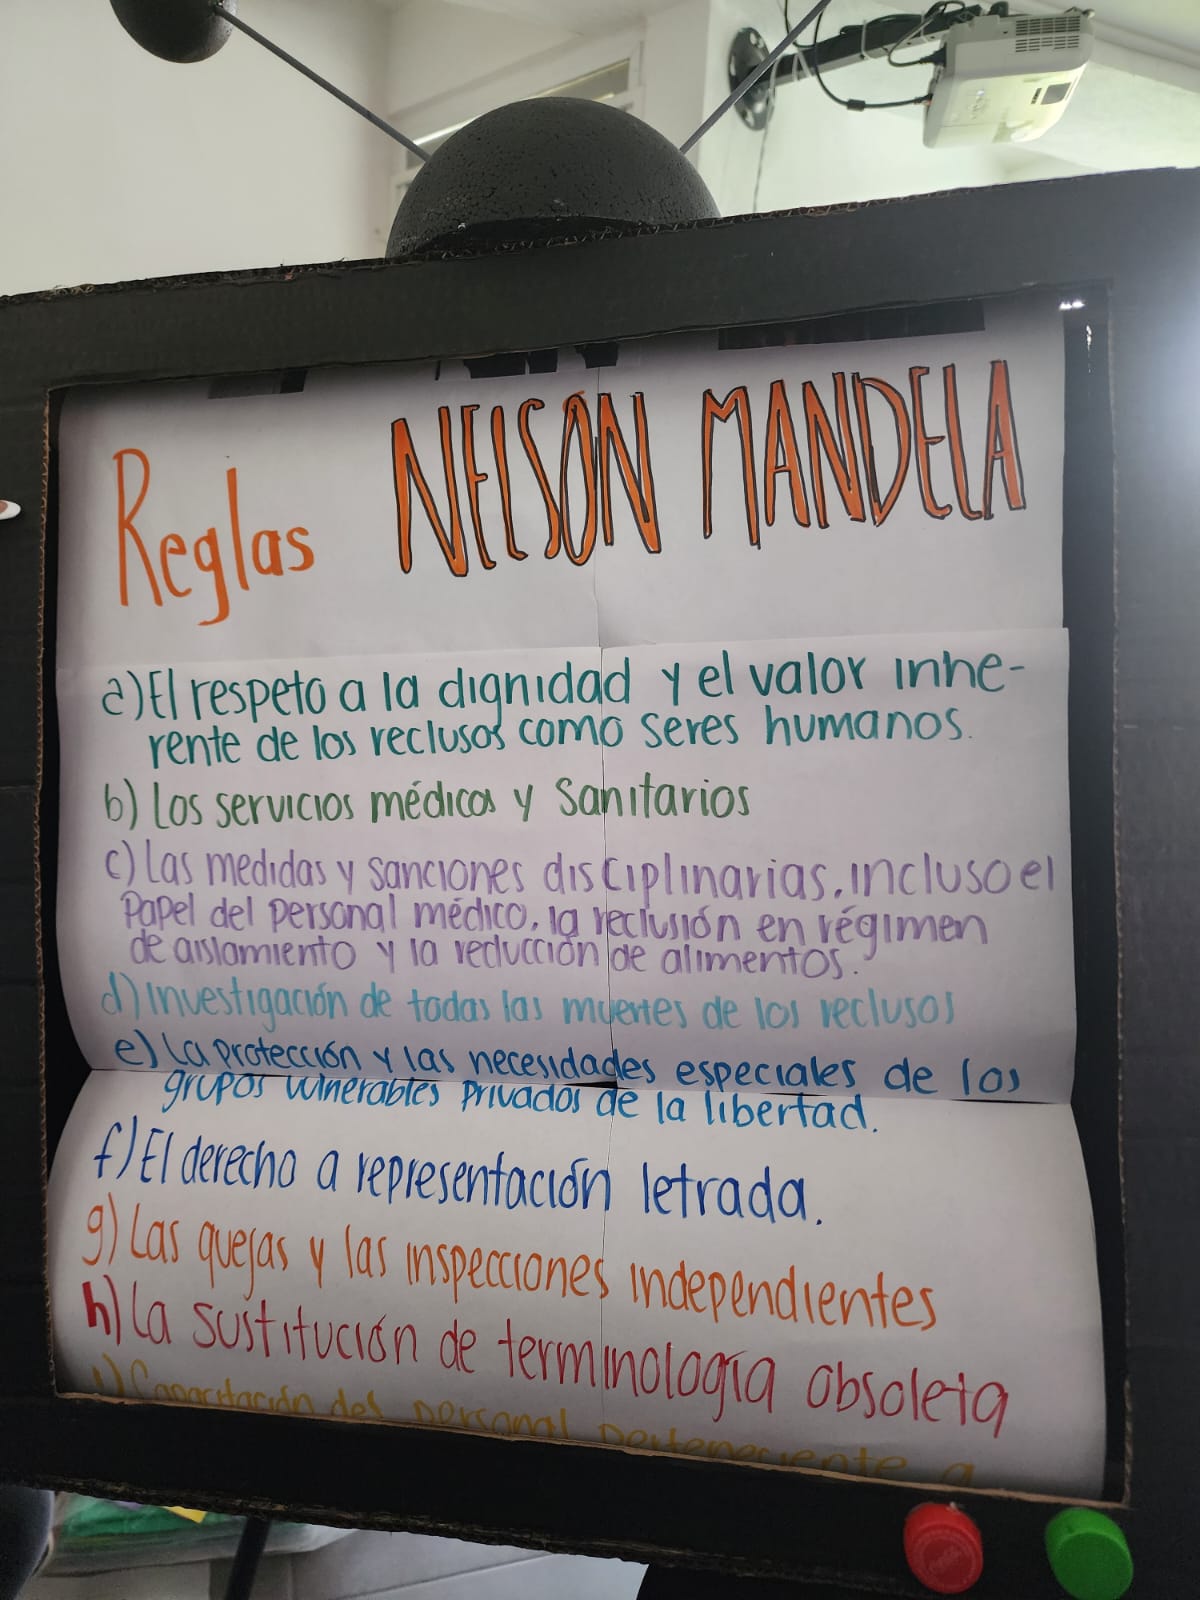 Reglas NELSON MANDELA
a) El respeto a la dignidad y el valor inhe-
rente de los reclusos como seres humanos.
b) Los servicios médicos y Sanitarios
c) Las medidas y sanciones disciplinarias, incluso el
Papel del personal médico, la reclusión en régimen
de aislamiento y la reducción de alimentos.
d) Investigación de todas las muertes de los reclusos
e) La protección y las necesidades especiales de los
grupos vulnerables privados de la libertad.
f) El derecho a representación letrada.
g) Las quejas y las inspecciones independientes
h) La sustitución de terminología obsoleta
i) Capacitación del personal perteneciente a